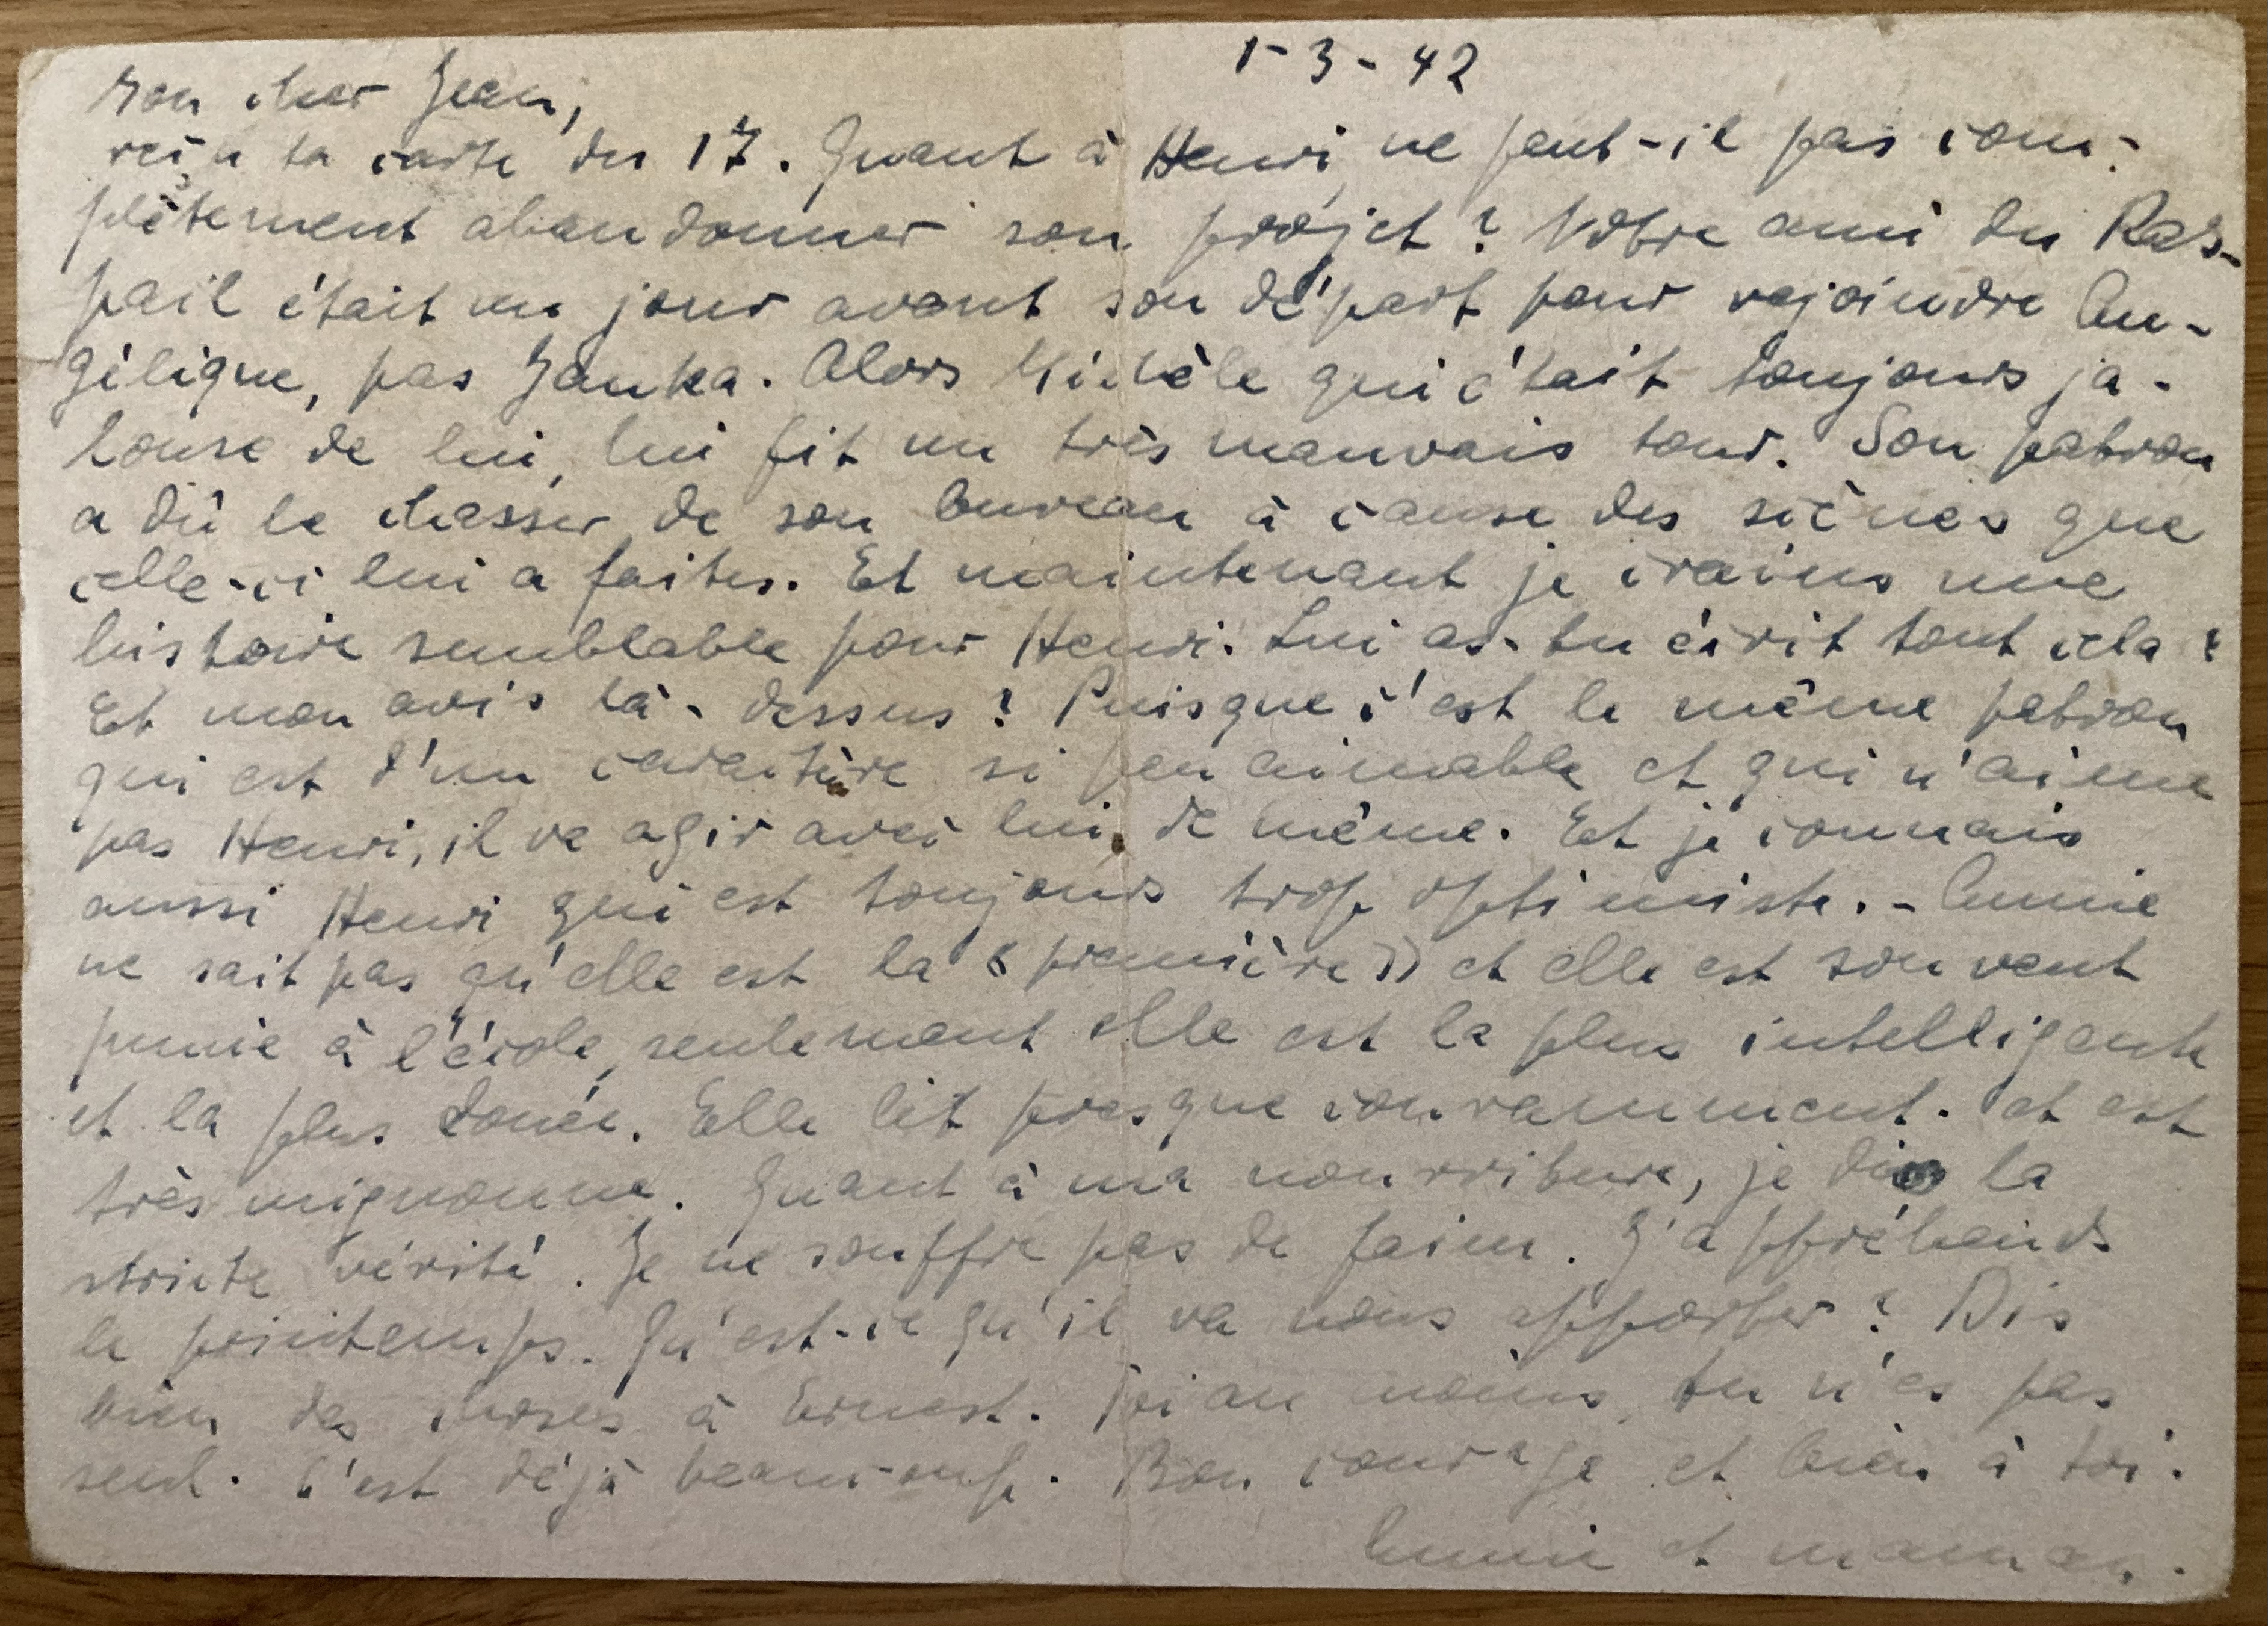 1-3-42
Mon cher Jean,
reçu ta carte du 17. Quant à Henri, ne peut-il pas com-
plètement abandonner son projet? Votre ami du Ras-
pail était un jour avant son départ pour rejoindre An-
gélique, pas Janka. Alors Michèle qui était toujours ja-
louse de lui, lui fit un très mauvais tour. Son patron
a dû le chasser de son bureau à cause des scènes que
celle-ci lui a faites. Et maintenant je crains une
histoire semblable pour Henri. Lui as-tu écrit tout cela?
Et mon avis là-dessus? Puisque c'est le même patron
qui est d'un caractère si peu aimable et qui n'aime
pas Henri, il va agir avec lui de même. Et je connais
aussi Henri qui est toujours trop optimiste. - Annie
ne sait pas qu'elle est la « première » et elle est souvent
punie à l'école, seulement elle est la plus intelligente
et la plus douée. Elle lit presque couramment. et est
très mignonne. Quant à ma nourriture, je dis la
stricte vérité. Je ne souffre pas de faim. J'appréhends
le printemps. Qu'est-ce qu'il va nous apporter? Dis
bien des choses à Ernest. Toi au moins, tu n'es pas
seul. C'est déjà beaucoup. Bon courage et bien à toi.
Annie et maman.